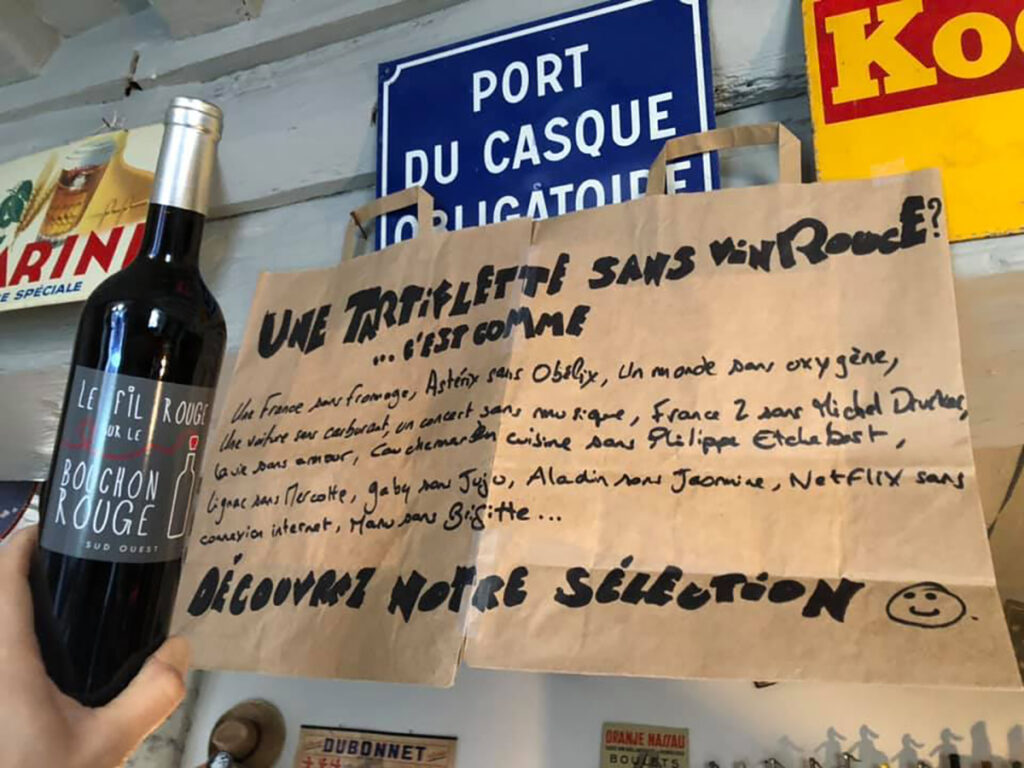 PORT
DU CASQUE
OBLIGATOIRE
Ko
ARINI
E SPÉCIALE
LE FIL ROUGE
SUR LE
BOUCHON
ROUGE
SUD OUEST
UNE TARTIFLETTE SANS VIN ROUGE?
... C'EST COMME
Une France sans fromage, Astérix sans Obélix, Un monde sans oxygène,
Une voiture sans carburant, un concert sans musique, France 2 sans Michel Drucker,
La vie sans amour, Cauchemar en cuisine sans Philippe Etchebest,
Lignac sans Mercotte, Gaby sans Juju, Aladin sans Jasmine, Netflix sans
connexion internet, Manu sans Brigitte...
DÉCOUVREZ NOTRE SÉLECTION
DUBONNET
ORANJE NASSAU
BOULETS